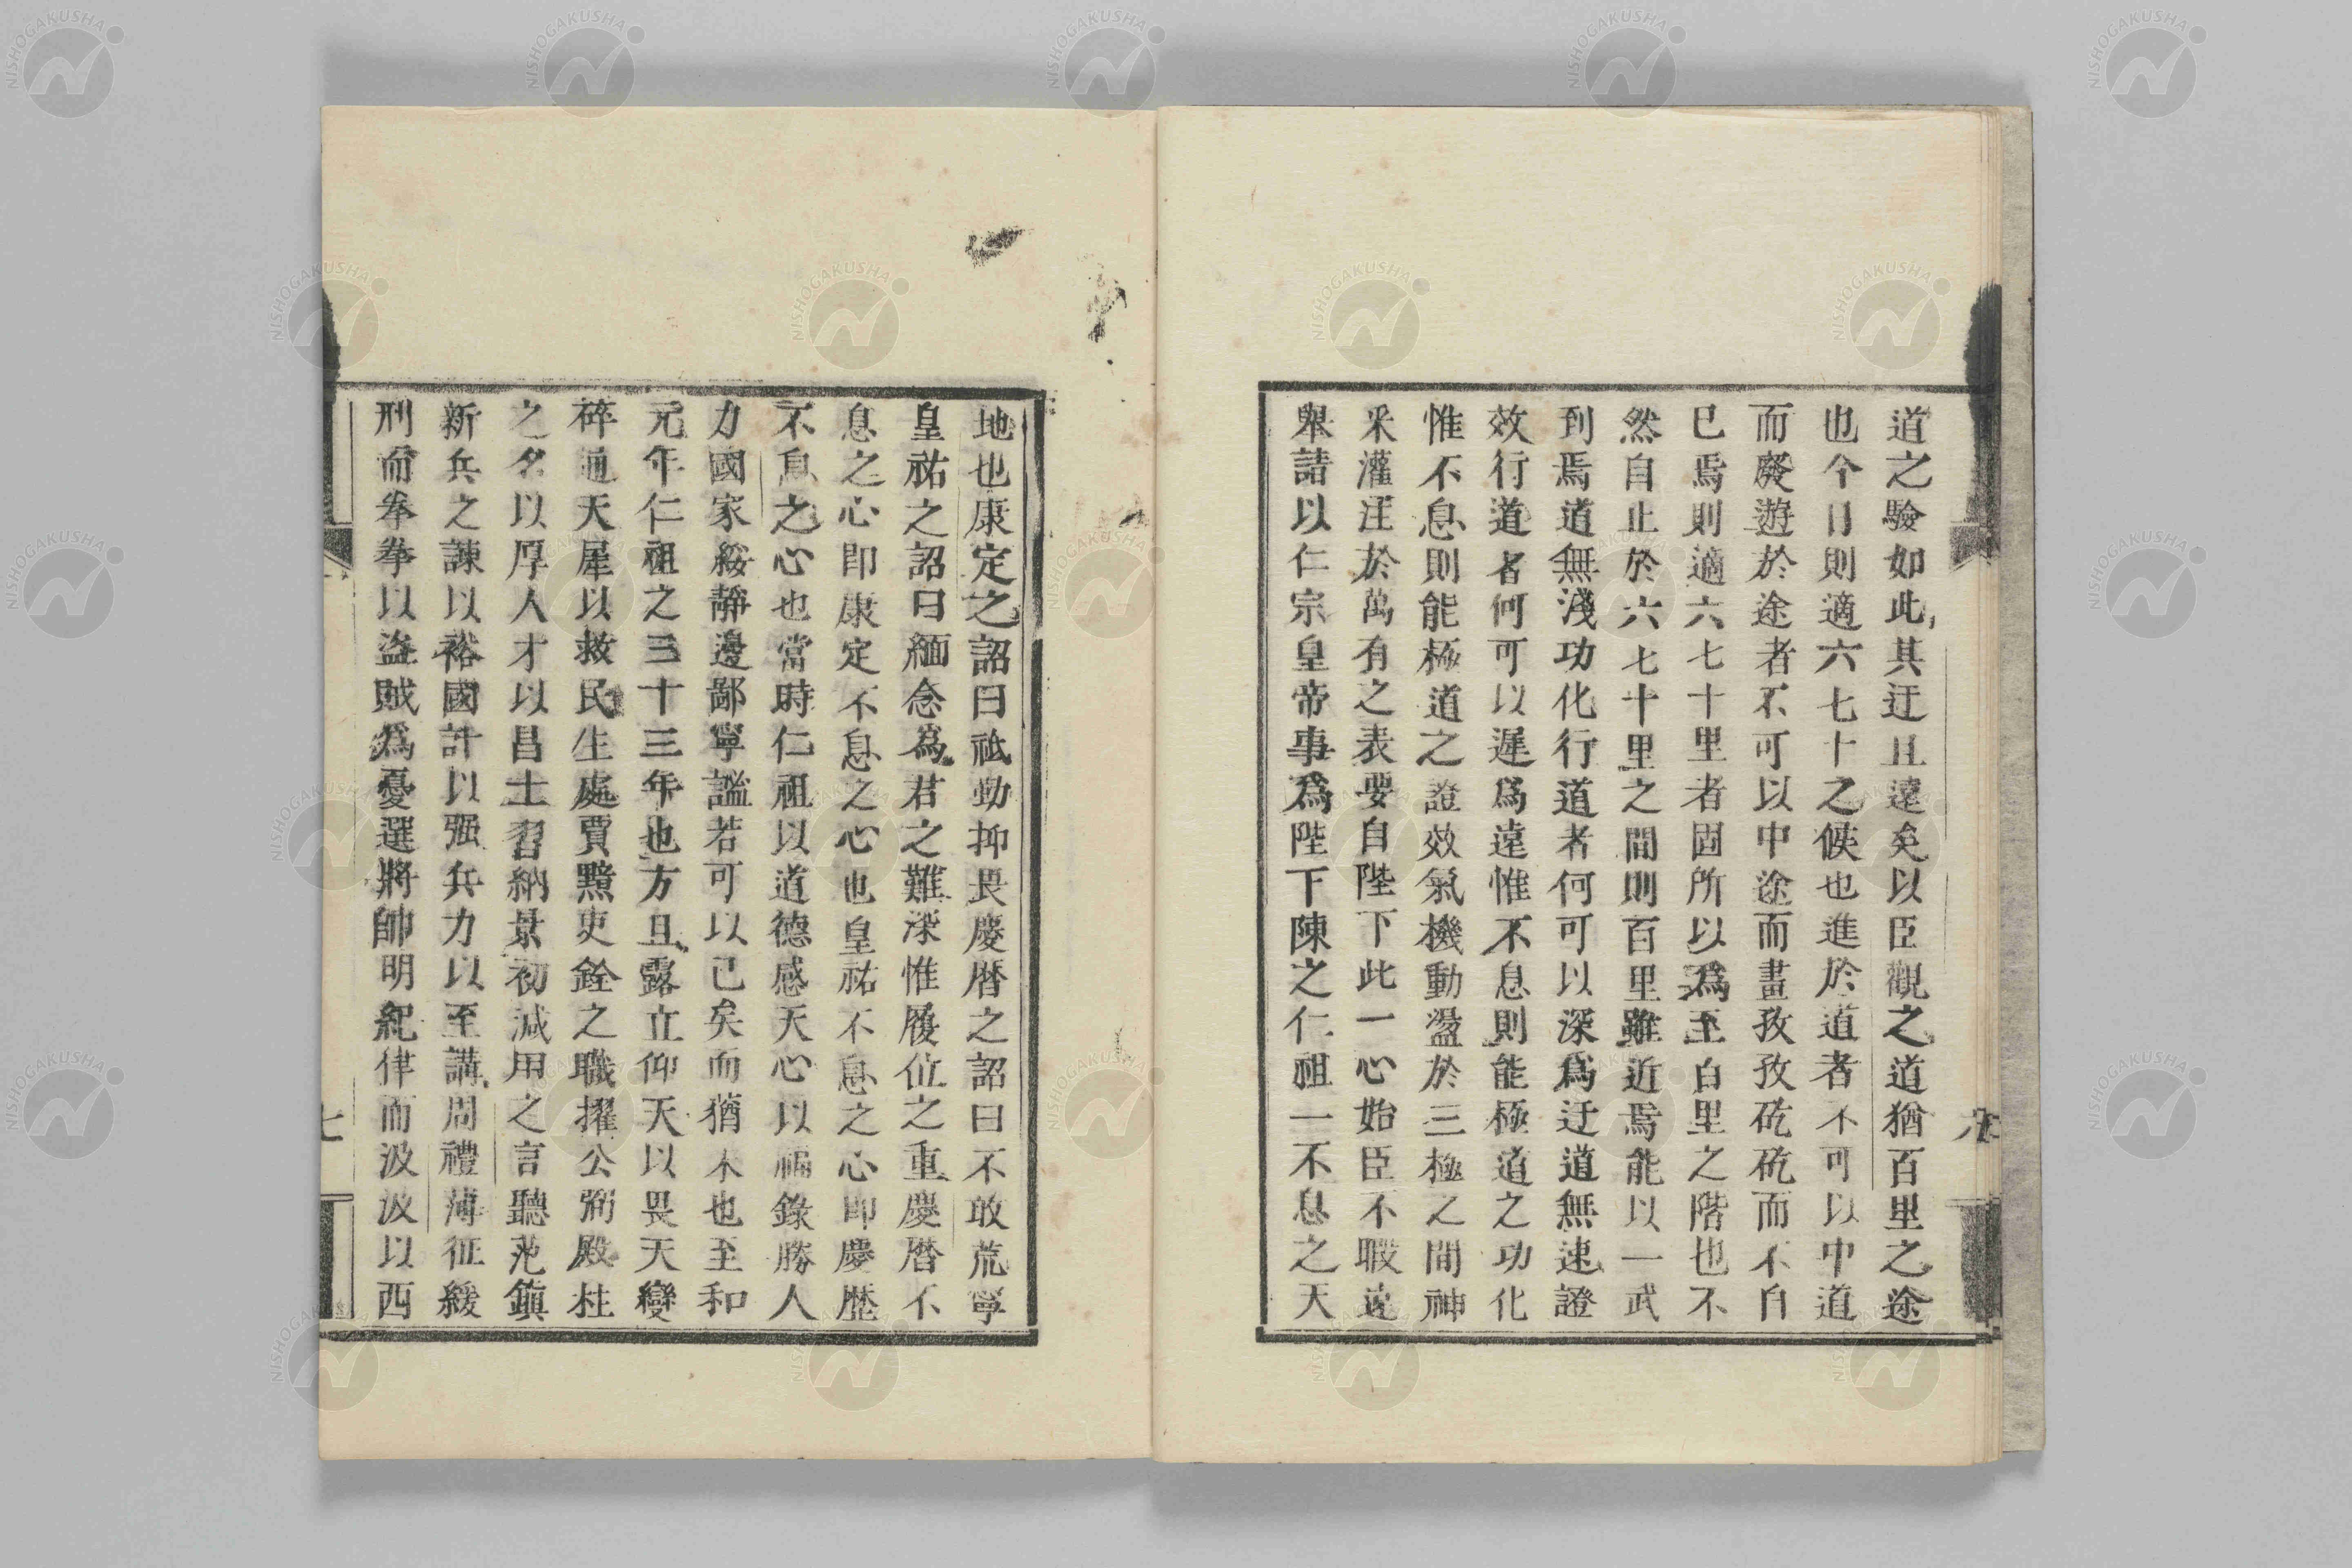 道之驗如此其迂且遠矣以臣觀之道猶百里之途
也今日則適六七十之候也進於道者不可以中道
而廢遊於途者不可以中途而畫孜孜矻矻而不自
已焉則適六七十里者固所以為至百里之階也不
然自止於六七十里之間則百里雖近焉能以一武
到焉道無淺功化行道者何可以深爲迂道無速證
效行道者何可以遲爲遠惟不息則能極道之功化
惟不息則能極道之證效氣機動盪於三極之間神
采灌注於萬有之表要自陛下此一心始臣不暇遠
舉請以仁宗皇帝事爲陛下陳之仁祖一不息之天
地也康定之詔曰祗勤抑畏慶曆之詔曰不敢荒寧
皇祐之詔曰緬念為君之難深惟履位之重慶曆不
息之心即康定不息之心也皇祐不息之心即慶歷
不息之心也當時仁祖以道德感天心以福錄勝人
力國家綏靜邊鄙寧謐若可以已矣而猶未也至和
元年仁祖之三十三年也方且露立仰天以畏天變
碎通天犀以救民生處賈黯吏銓之職擢公弼殿柱
之名以厚人才以昌士習納景初減用之言聽范鎮
新兵之諫以裕國計以强兵力以至講周禮薄征緩
刑而拳拳以盜賊為憂選將帥明紀律而汲汲以西
七
NISHOGAKUSHA